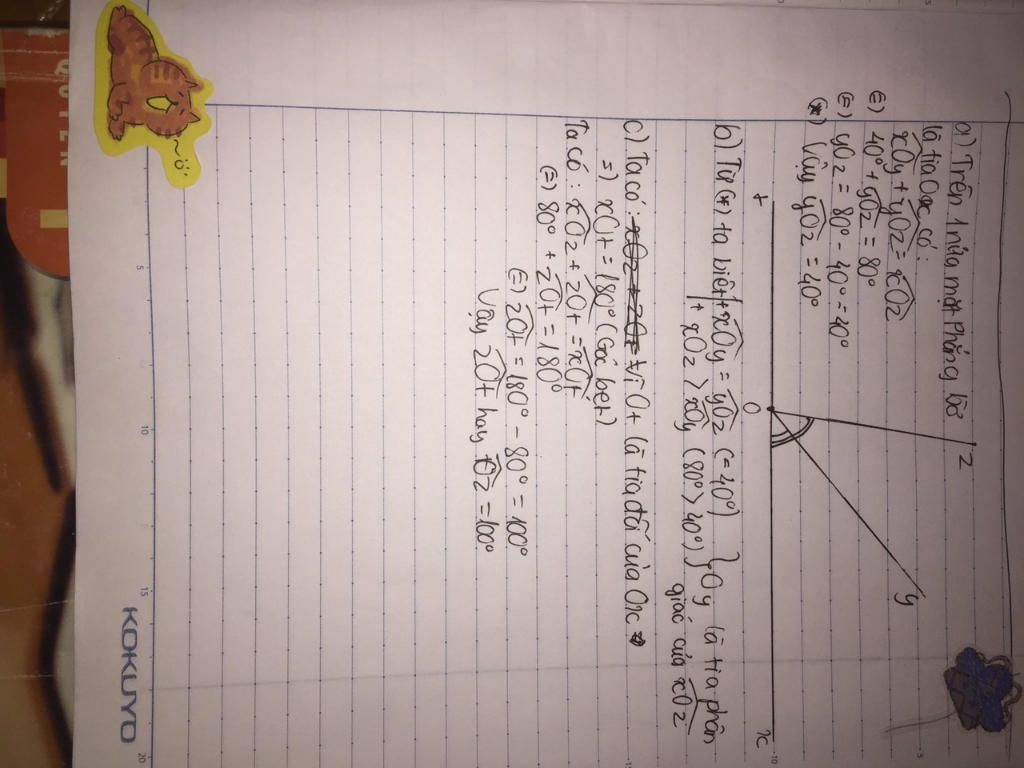 z
y
O
t
x
a) Trên 1 nửa mặt phẳng bờ
là tia Ox có:
xOy + yOz = xOz
(=) 40° + yOz = 80°
(=) yOz = 80° - 40° = 40°
(*) Vậy yOz = 40°
b) Từ (*) ta biết + xOy = yOz (= 40°) } Oy là tia phân
+ xOz > xOy (80° > 40°) giác của xOz
c) Ta có: Vì Ot là tia đối của Ox
=) xOt = 180° (Góc bẹt)
Ta có: xOz + zOt = xOt
(=) 80° + zOt = 180°
(=) zOt = 180° - 80° = 100°
Vậy zOt hay tOz = 100°
KOKUYO
5
10
15
20